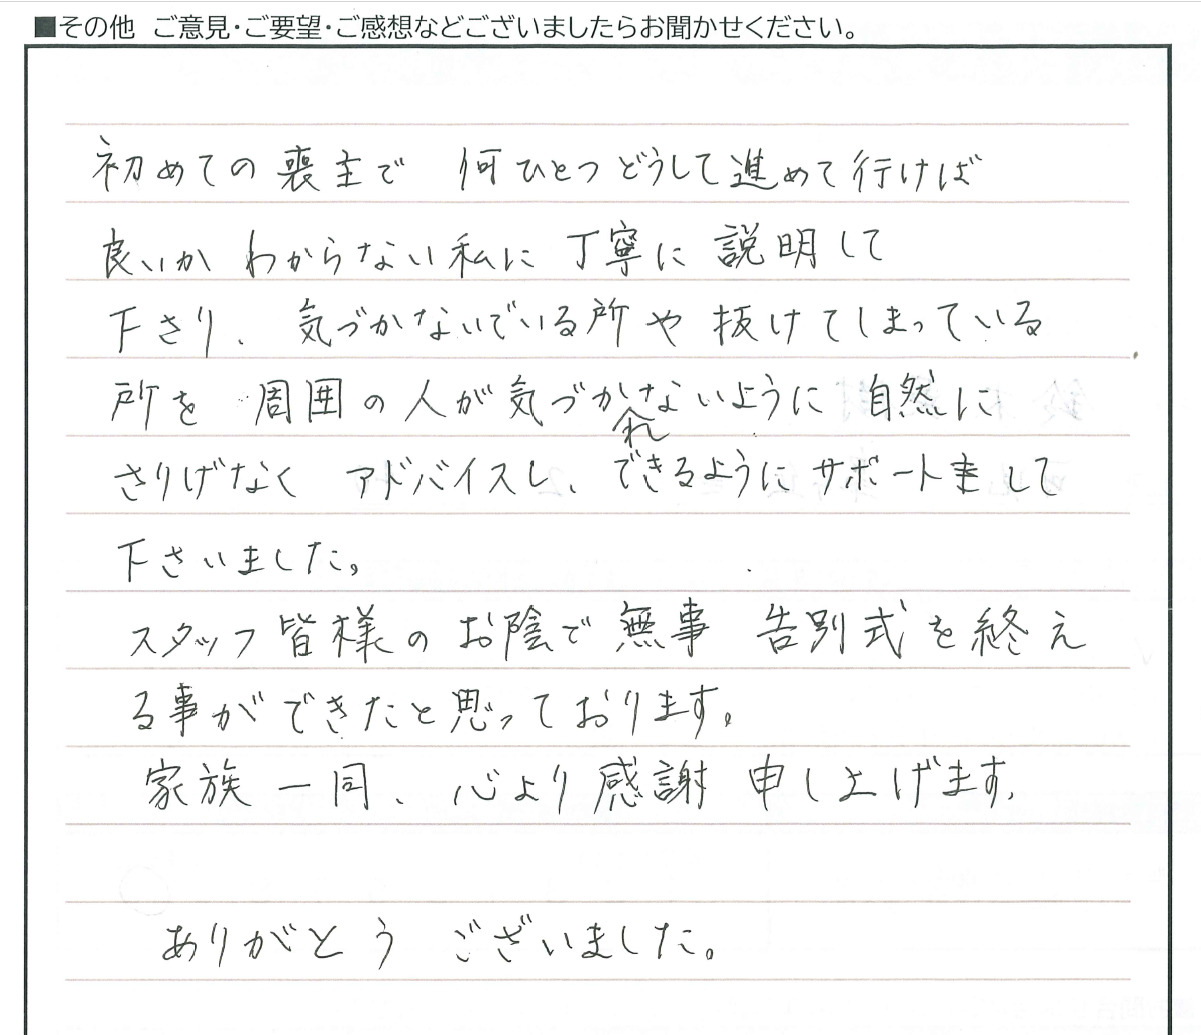 ■その他 ご意見・ご要望・ご感想などございましたらお聞かせください。
初めての喪主で 何ひとつどうして進めて行けば
良いか わからない私に 丁寧に 説明して
下さり、 気づかないでいる所や 抜けてしまっている
所を 周囲の人が気づかれないように 自然に
さりげなく アドバイスし、できるようにサポートまして
下さいました。
スタッフ皆様のお陰で無事 告別式を終え
る事ができたと思っております。
家族一同、心より感謝 申し上げます。
ありがとう ございました。